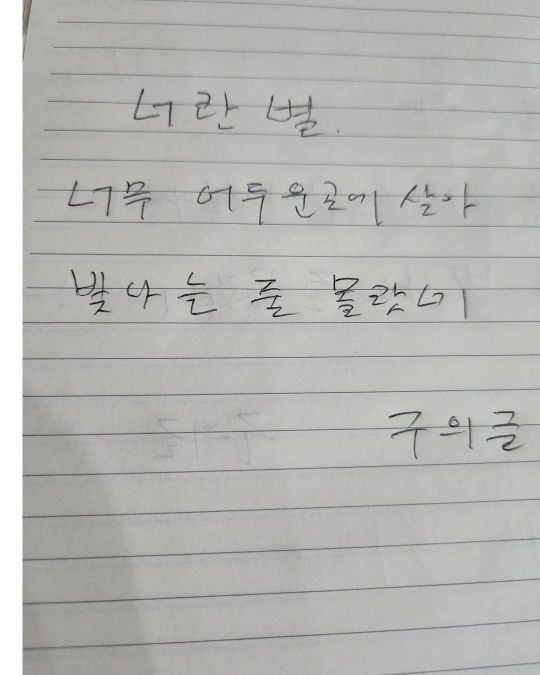 너란 별.
너무 어두운곳에 살아
빛나는 줄 몰랐니
구의글